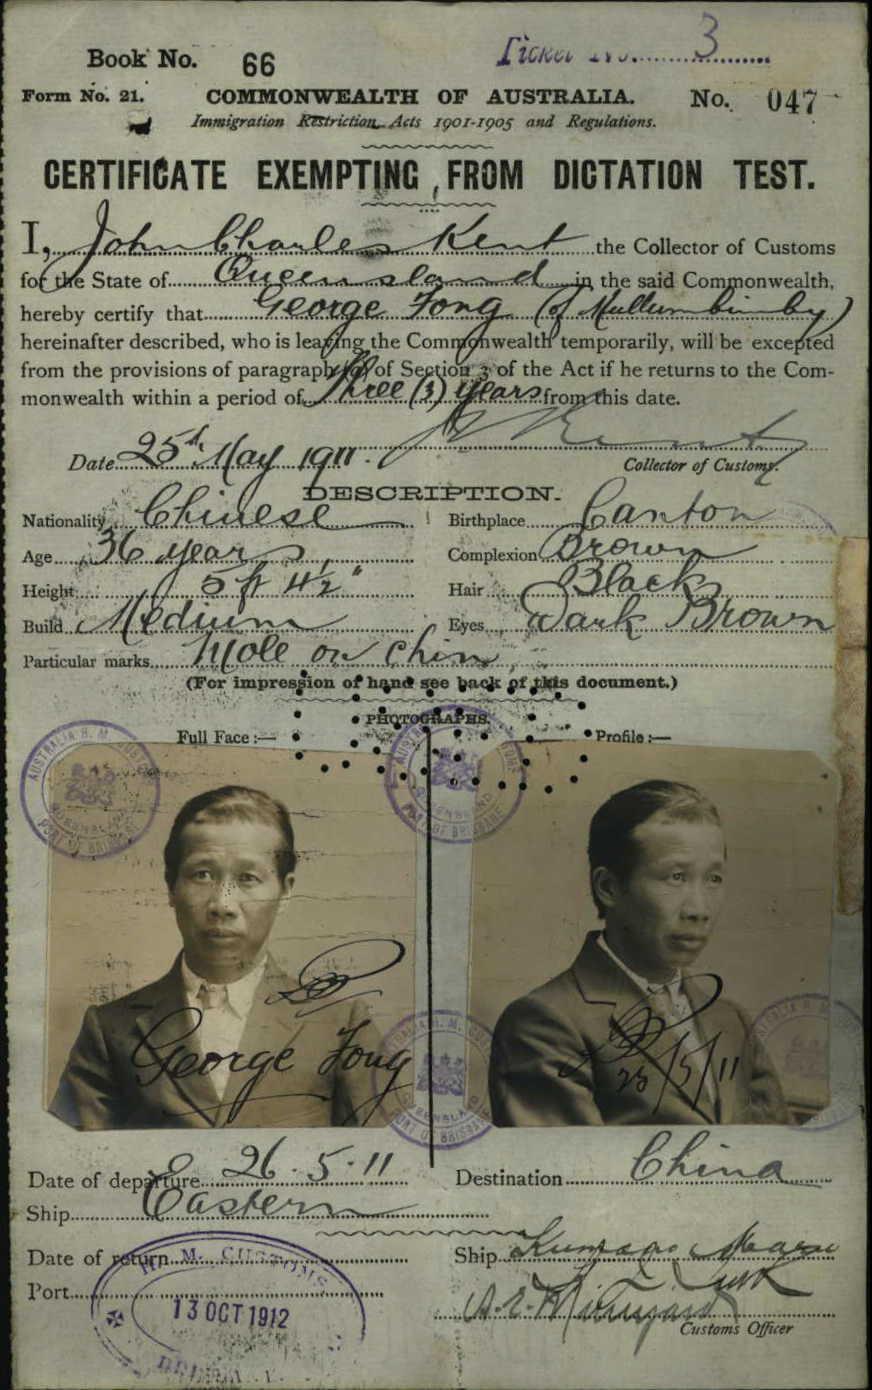 Book No. 66
Ticket No. 3
Form No. 21. COMMONWEALTH OF AUSTRALIA. No. 047
Immigration Restriction Acts 1901-1905 and Regulations.
CERTIFICATE EXEMPTING FROM DICTATION TEST.
I, John Charles Kent the Collector of Customs
for the State of Queensland in the said Commonwealth,
hereby certify that George Fong (of Mullumbimby)
hereinafter described, who is leaving the Commonwealth temporarily, will be excepted
from the provisions of paragraph (a) of Section 3 of the Act if he returns to the Com-
monwealth within a period of Three (3) years from this date.
Date 25th May 1911. J C Kent
Collector of Customs.
DESCRIPTION.
Nationality Chinese Birthplace Canton
Age 36 years Complexion Brown
Height 5 ft 4½" Hair Black
Build Medium Eyes Dark Brown
Particular marks Mole on chin
(For impression of hand see back of this document.)
PHOTOGRAPHS.
Full Face :— Profile :—
AUSTRALIA H. M. CUSTOMS
QUEENSLAND
PORT OF BRISBANE
AUSTRALIA H. M. CUSTOMS
QUEENSLAND
PORT OF BRISBANE
George Fong
25/5/11
AUSTRALIA H. M. CUSTOMS
QUEENSLAND
PORT OF BRISBANE
Date of departure 26.5.11 Destination China
Ship Eastern
Date of return Ship Kumano Maru
Port
H. M. CUSTOMS
13 OCT 1912
Customs Officer